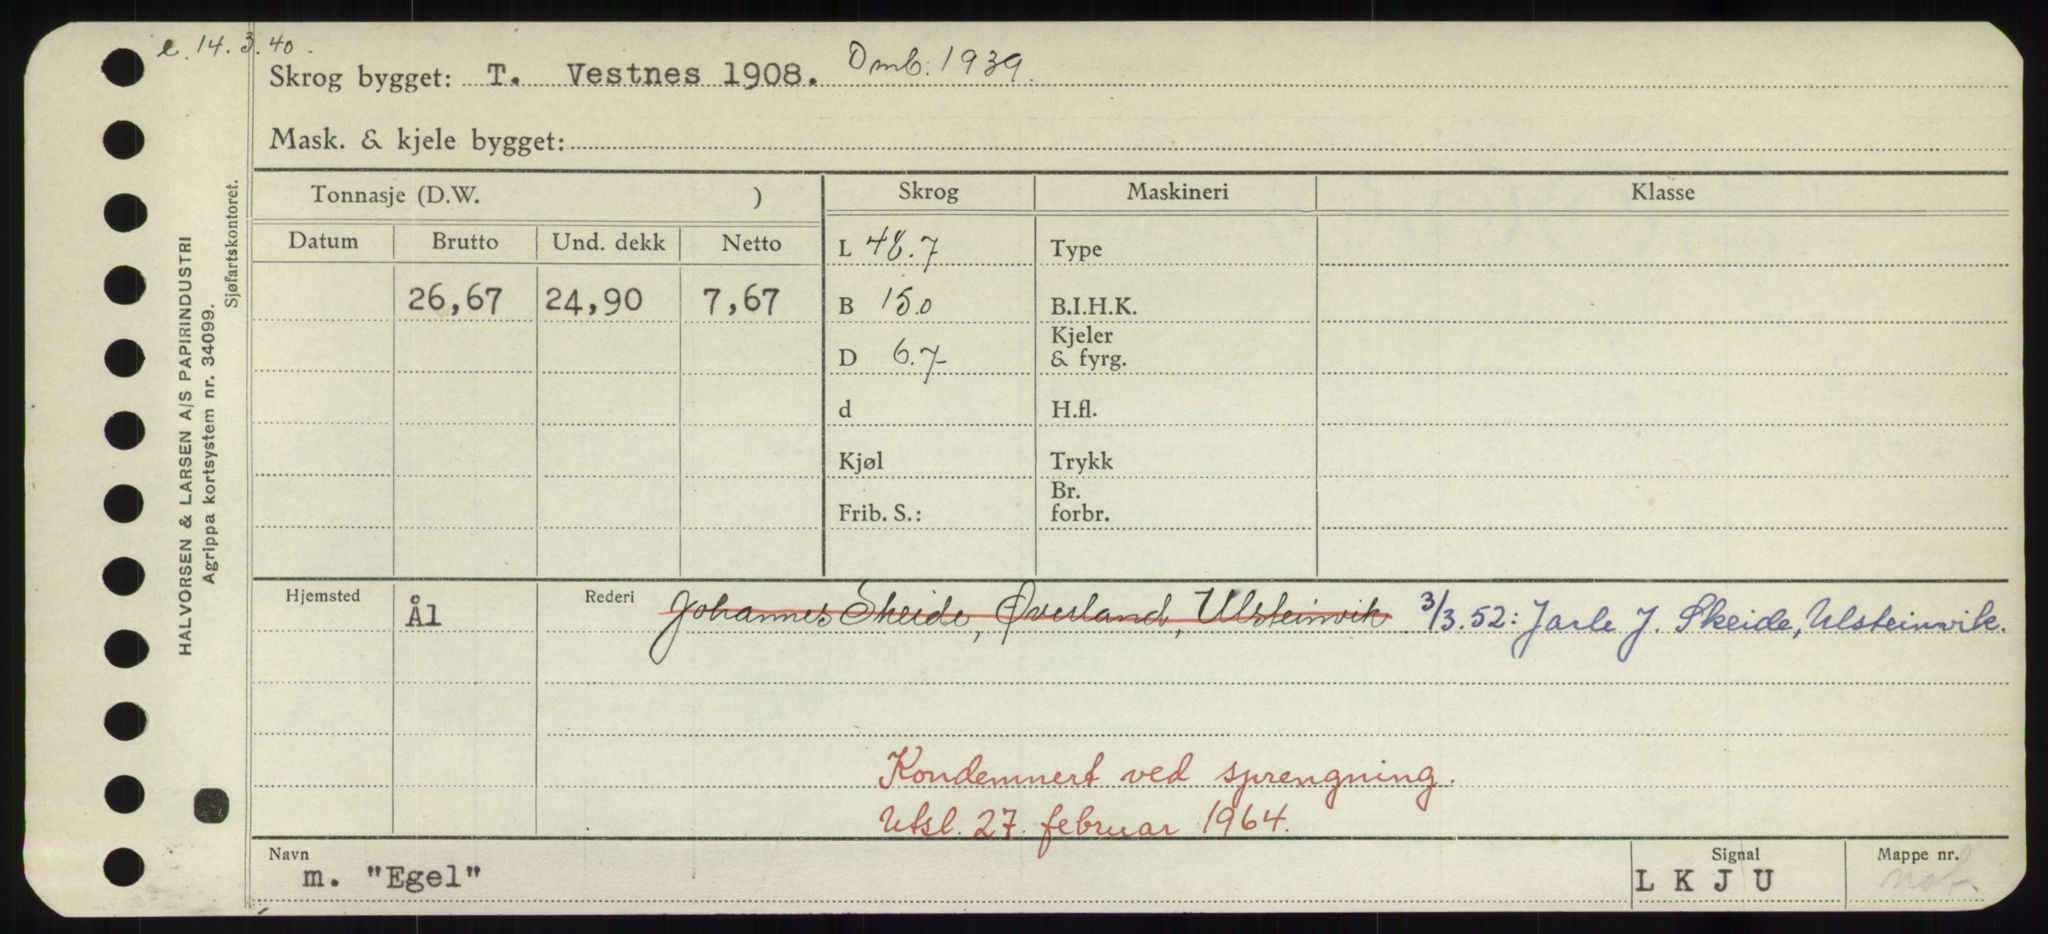 e. 14.3.40.
Skrog bygget: T. Vestnes 1908. Omb. 1939.
Mask. & kjele bygget:
Tonnasje (D.W. )
Skrog
Maskineri
Klasse
Datum
Brutto
Und. dekk
Netto
26,67
24,90
7,67
L 48.7
B 15.0
D 6.7
d
Kjøl
Frib. S.:
Type
B.I.H.K.
Kjeler
& fyrg.
H.fl.
Trykk
Br.
forbr.
Hjemsted
Ål
Rederi
Johannes Skeide, Øverland, Ulsteinvik 3/3.52: Jarle J. Skeide, Ulsteinvik.
Kondemnert ved sprengning.
Utsl. 27. februar 1964.
Navn
m. "Egel"
Signal
L K J U
Mappe nr.
HALVORSEN & LARSEN A/S PAPIRINDUSTRI
Agrippa kortsystem nr. 34099.
Sjøfartskontoret.